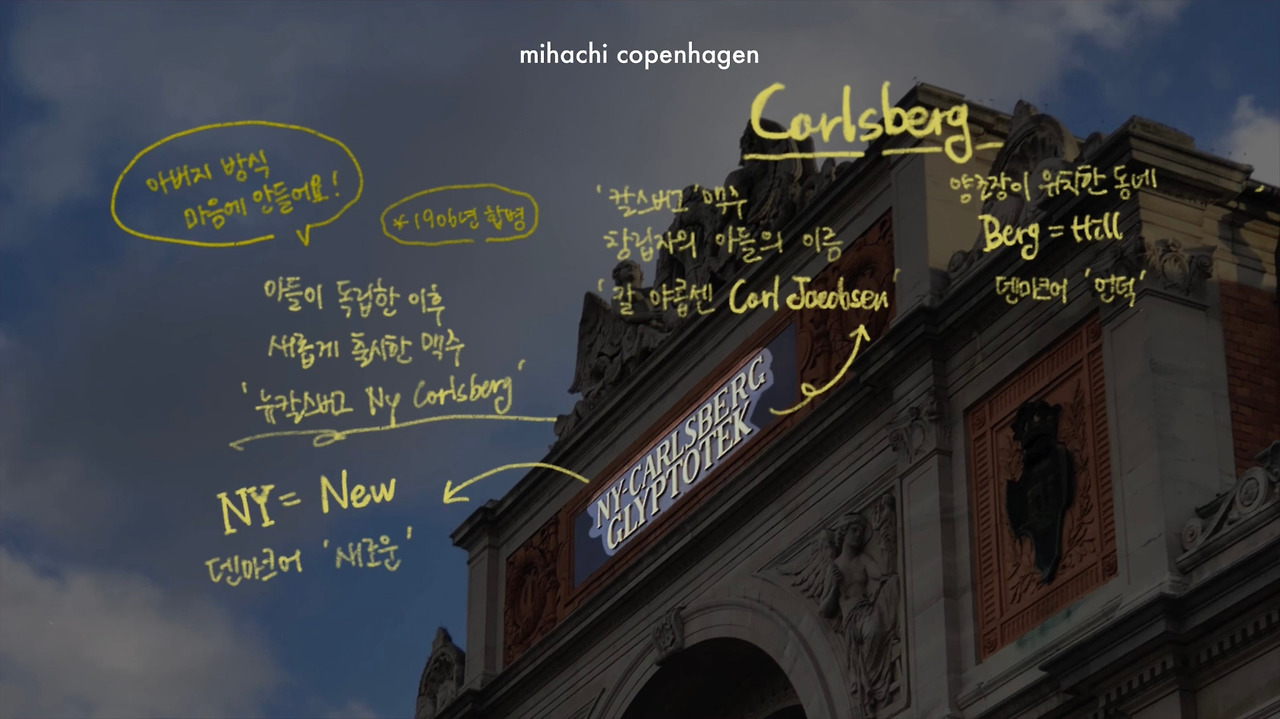 mihachi copenhagen
Carlsberg
'칼스버그' 맥주
창립자의 아들의 이름
'칼 야콥센 Carl Jacobsen'
양조장이 위치한 동네
Berg = Hill
덴마크어 '언덕'
아버지 방식
마음에 안들어요!
*1906년 합병
아들이 독립한 이후
새롭게 출시한 맥주
'뉴칼스버그 Ny Carlsberg'
NY = New
덴마크어 '새로운'
NY-CARLSBERG
GLYPTOTEK